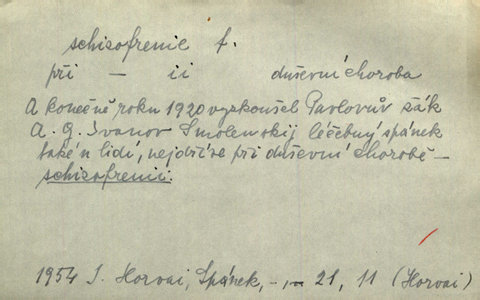 schizofrenie f.
při — ii duševní choroba
A konečně roku 1920 vyzkoušel Pavlovův žák
A. G. Ivanov Smolenskij léčebný spánek
také u lidí, nejdříve při duševní chorobě –
schizofrenii.
1954 I. Horvai, Spánek, -„- 21, 11 (Horvai)